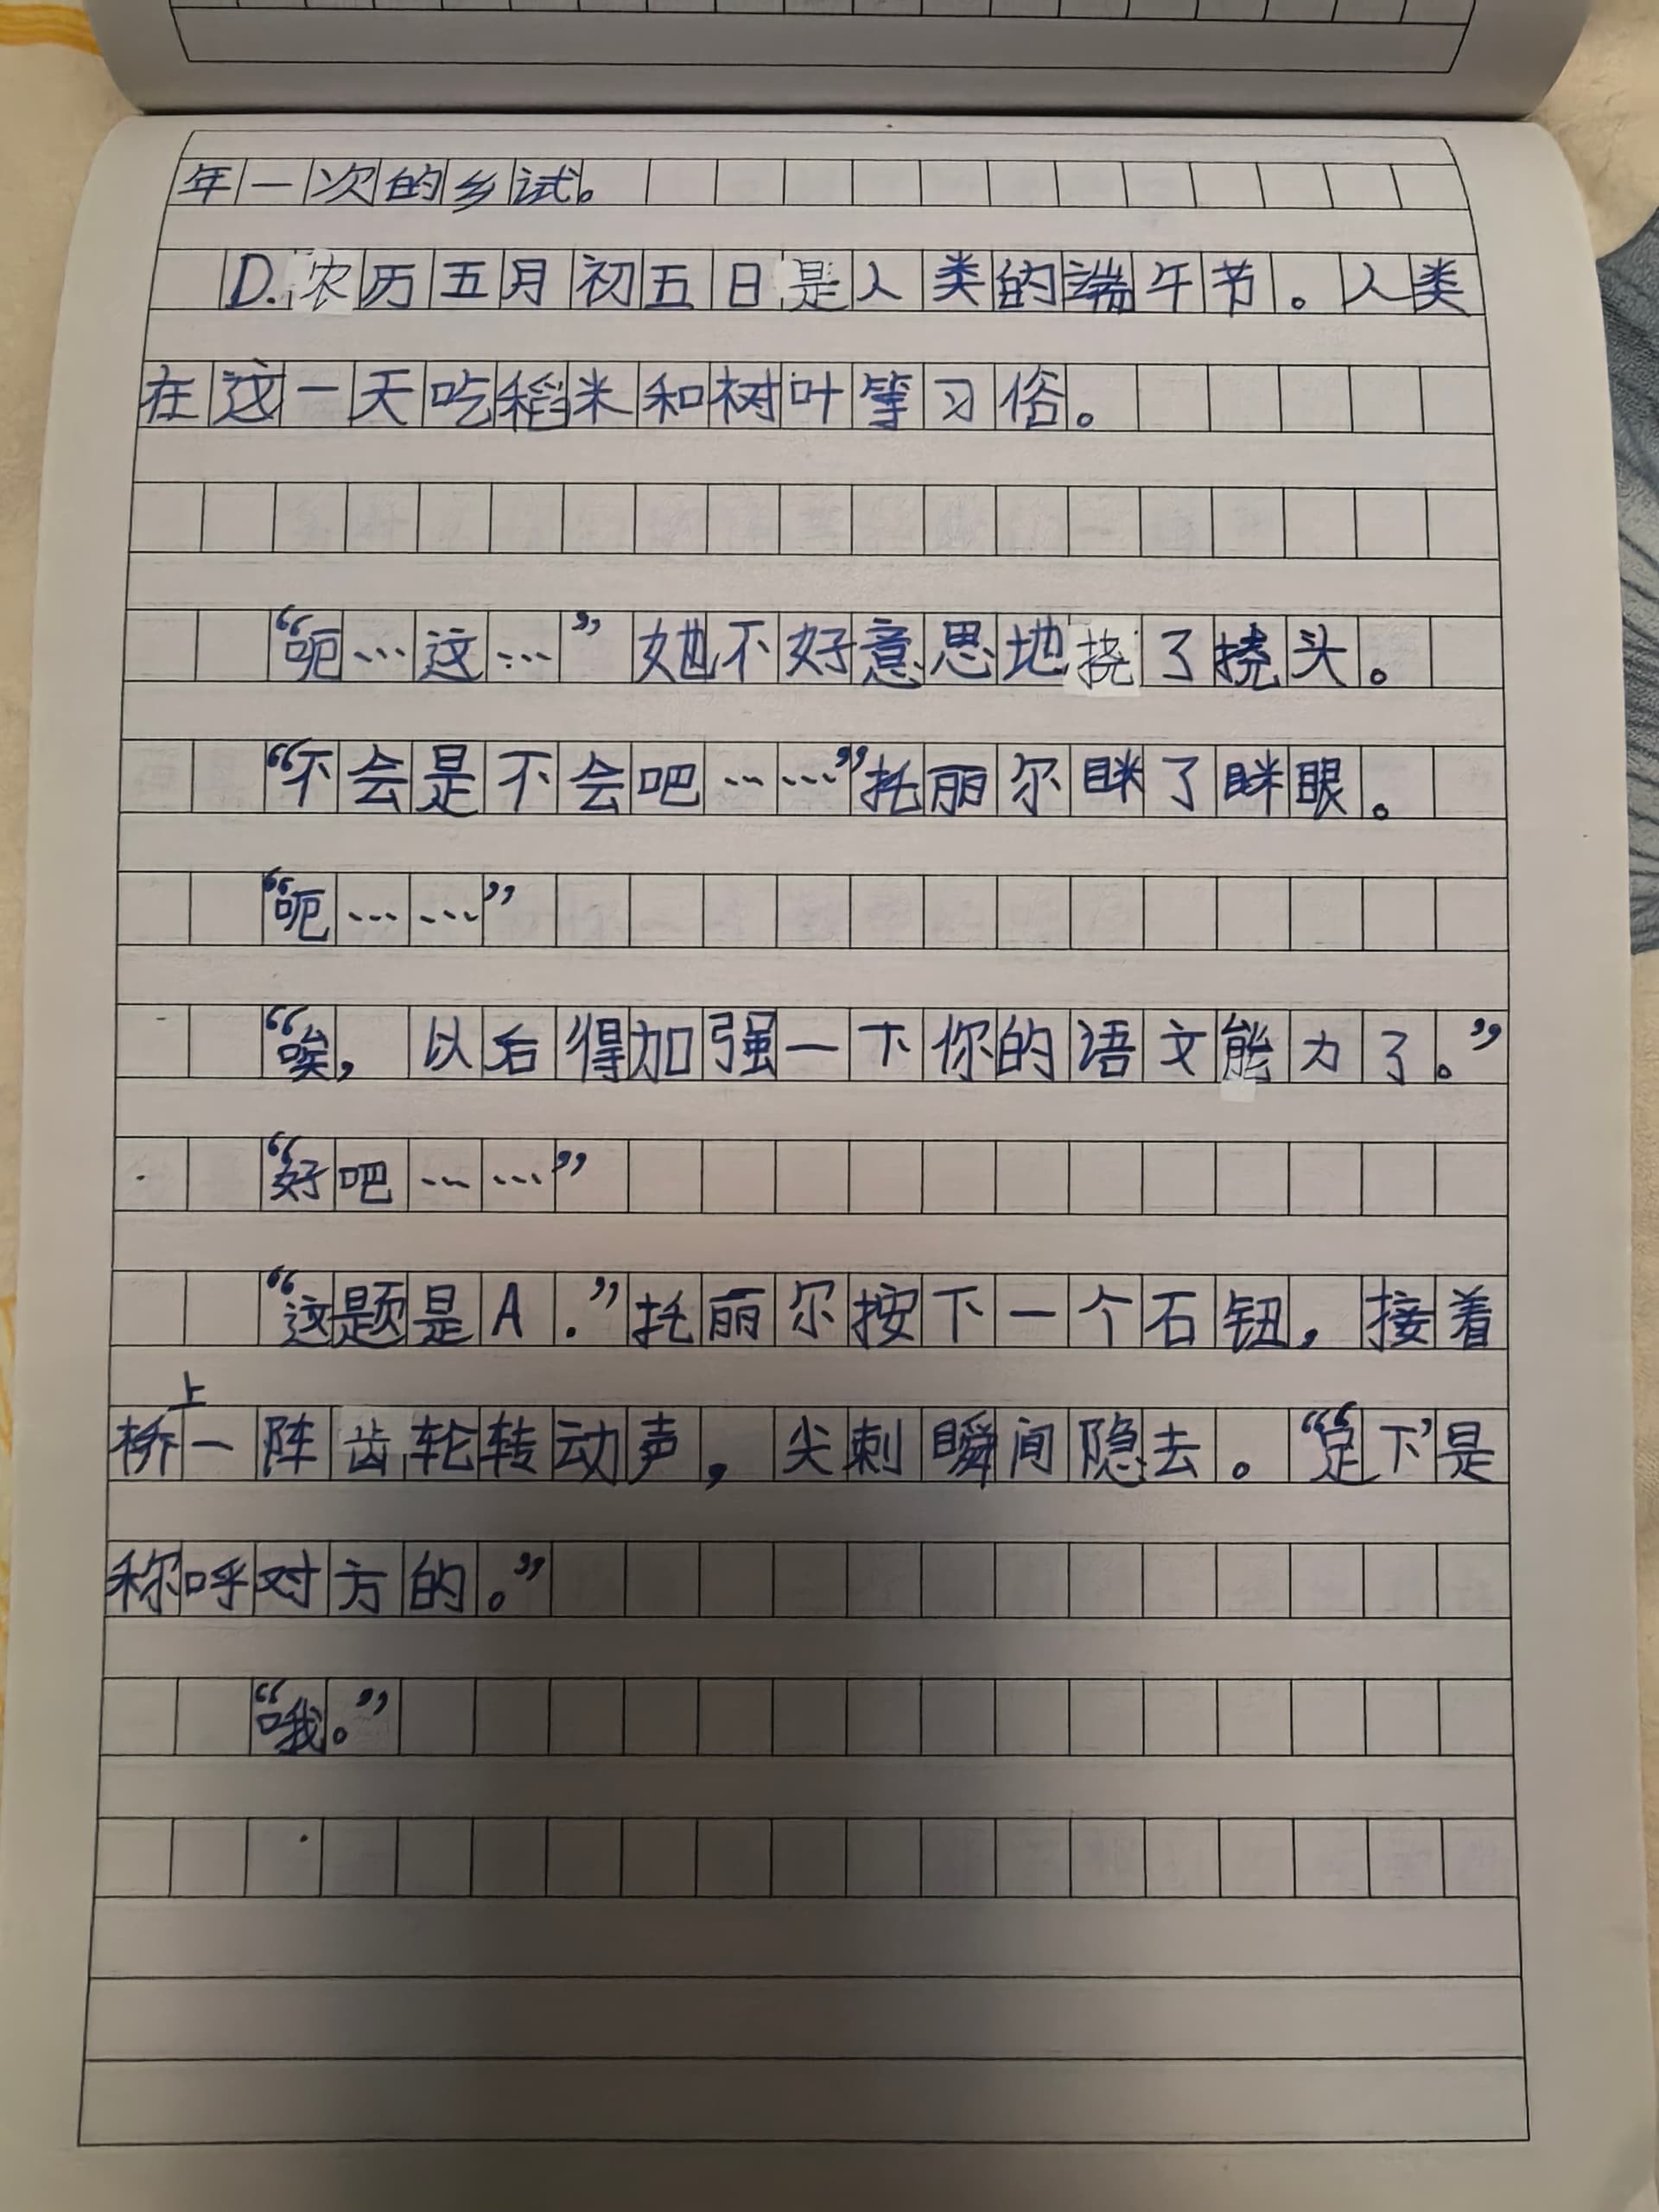 年一次的乡试。
D.农历五月初五日是人类的端午节。人类
在这一天吃稻米和树叶等习俗。
“呃…这…”她不好意思地挠了挠头。
“不会是不会吧……”托丽尔眯了眯眼。
“呃……”
“唉，以后得加强一下你的语文能力了。”
“好吧……”
“这题是A.”托丽尔按下一个石钮，接着
桥上一阵齿轮转动声，尖刺瞬间隐去。“‘足下’是
称呼对方的。”
“哦。”